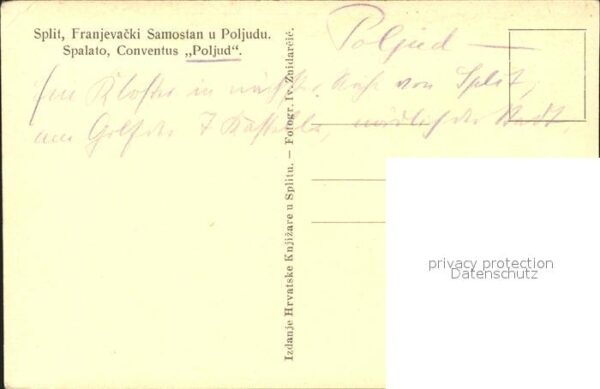 Split, Franjevački Samostan u Poljudu.
Spalato, Conventus „Poljud“.
Poljud —
Im Kloster in nächster Nähe von Split,
am Golf der 7 Kastelle, nördlich der Stadt.
Izdanje Hrvatske Knjižare u Splitu. — Fotogr. Iv. Znidarčić.
privacy protection
Datenschutz